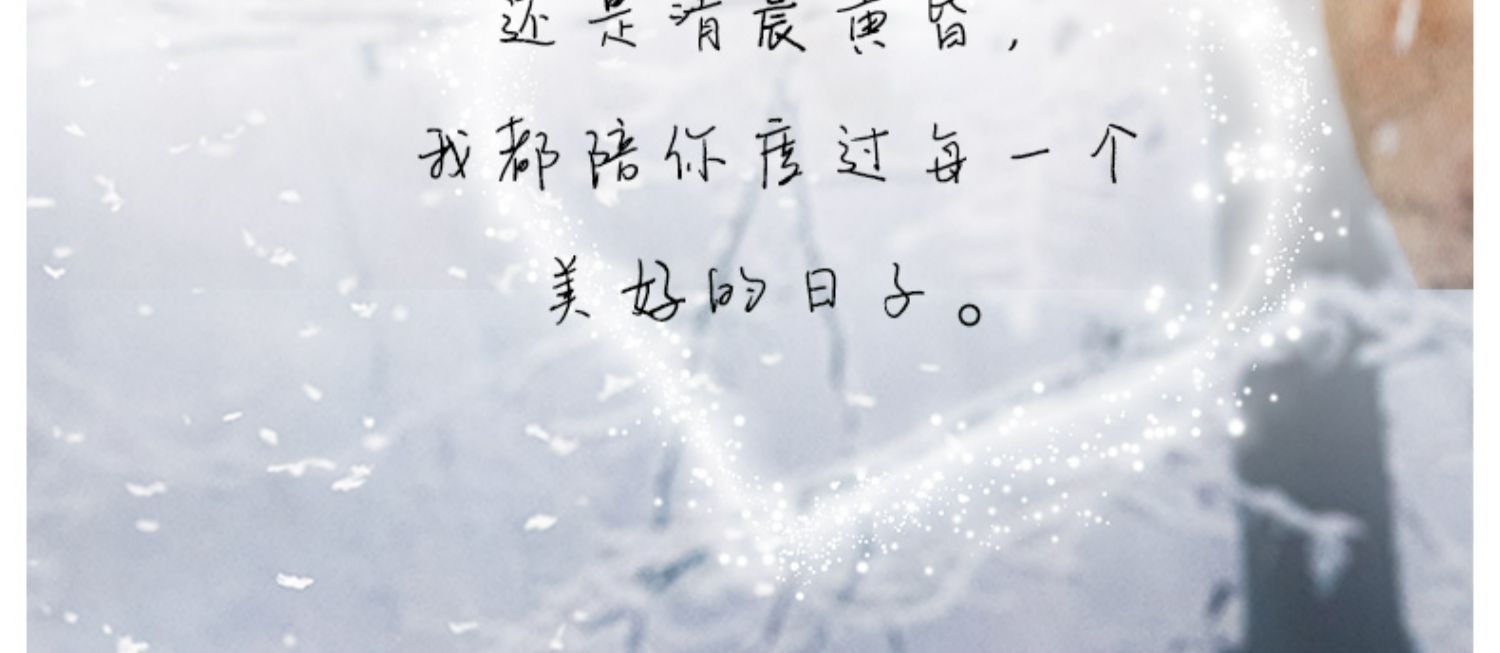 还是清晨黄昏，
我都陪你度过每一个
美好的日子。